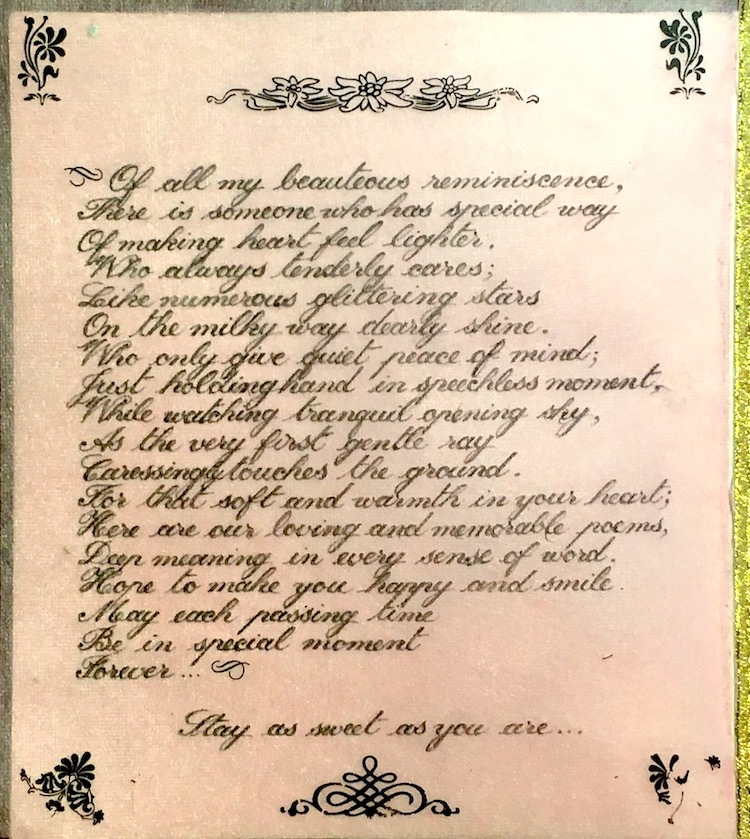 Of all my beauteous reminiscence,
There is someone who has special way
Of making heart feel lighter.
Who always tenderly cares;
Like numerous glittering stars
On the milky way dearly shine.
Who only give quiet peace of mind;
Just holding hand in speechless moment,
While watching tranquil opening sky,
As the very first gentle ray
Caressingly touches the ground.
For that soft and warmth in your heart;
Here are our loving and memorable poems,
Deep meaning in every sense of word.
Hope to make you happy and smile.
May each passing time
Be in special moment
Forever...
Stay as sweet as you are...